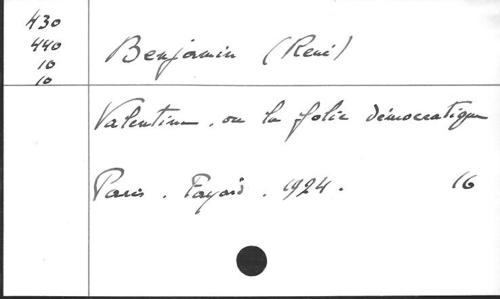 430
440
10
10
Benjamin (René)
Valentine, ou la folie démocratique
Paris. Fayard. 1924. 16